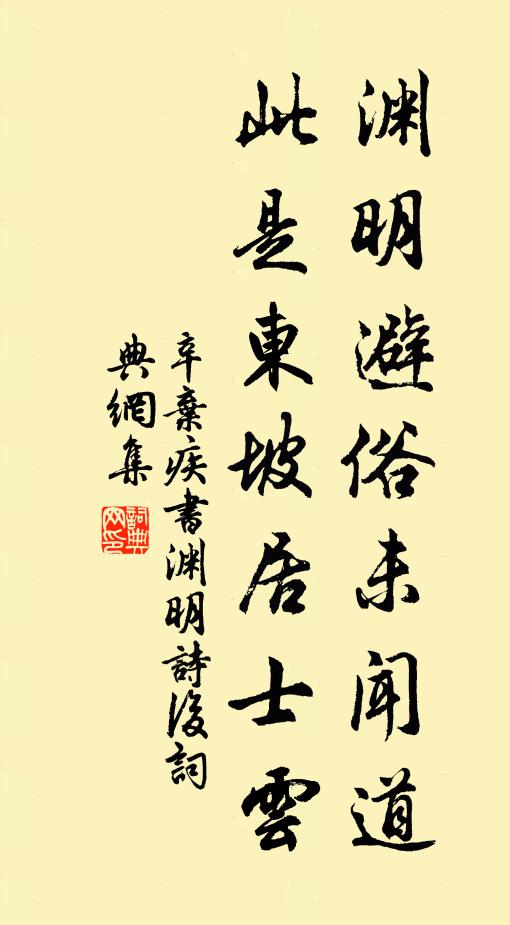 渊明避俗未闻道
此是東坡居士雲
辛棄疾書渊明詩後詞
典網集
詞典
网印